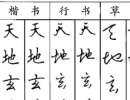 楷书行书草
天天天天天
地地地地地
玄玄玄玄玄